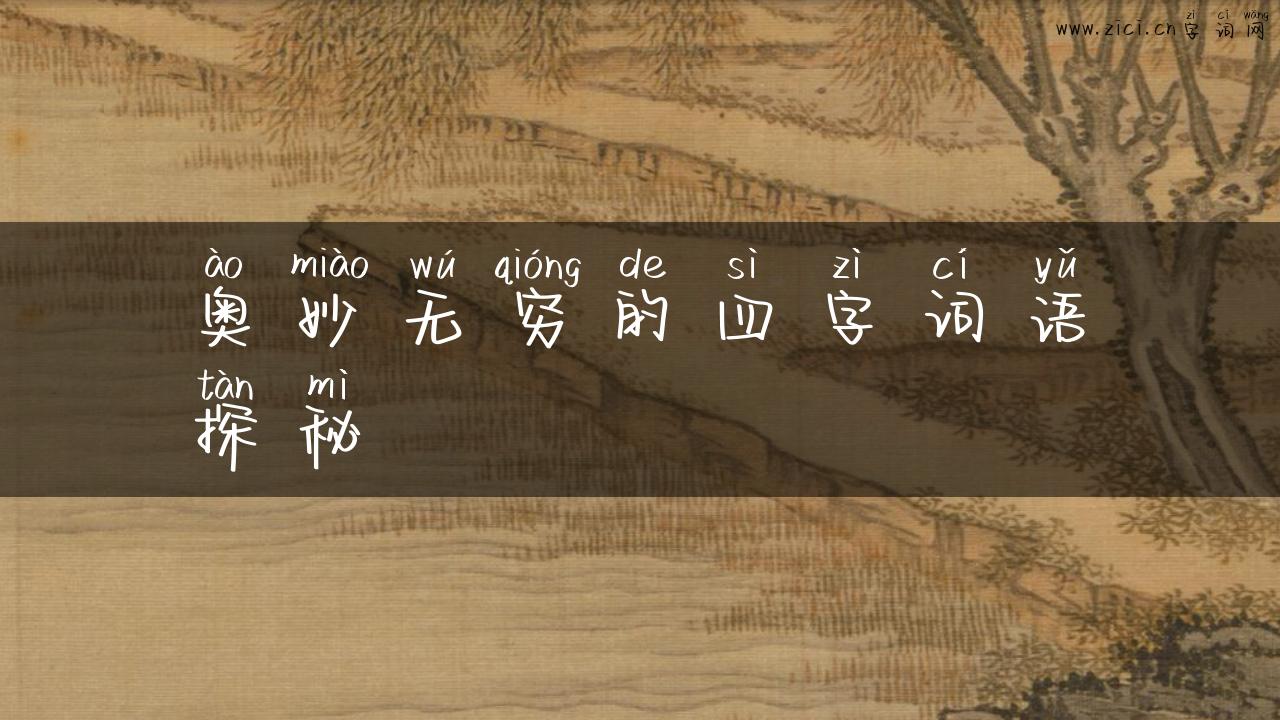 zì cí wǎng
www.zici.cn字词网
ào miào wú qióng de sì zì cí yǔ
奥妙无穷的四字词语
tàn mì
探秘